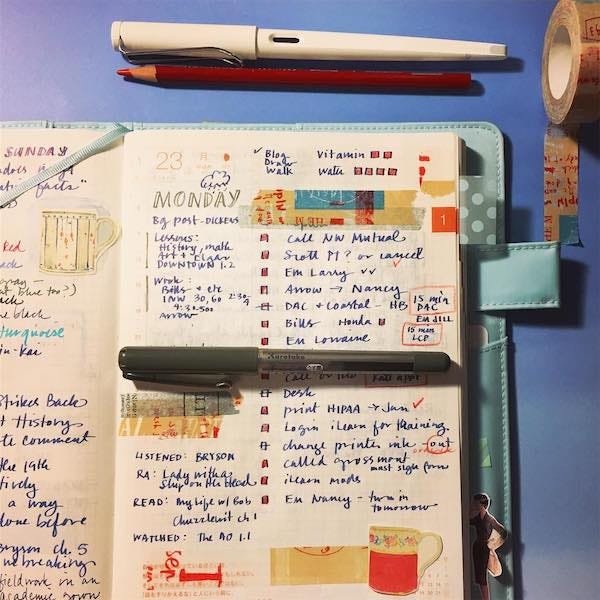 SUNDAY
Red
turquoise
Strikes Back
History
comment
the 19th
a way
done before
Bryson ch. 5
fieldwork in an
23 月
MONDAY
Bg post - DICKENS
Lessons:
History, math
Art + Elgar
DOWNTON 1.2
Work:
Bills + etc
INW 30, 60 2:30-4
4:30-500
Arrow
LISTENED: BRYSON
RA: Lady with a
Ship on Her Head
READ: My Life w/ Bob
Chuzzlewit ch 1
WATCHED: The AO 1.1
✓ Blog
Draw
Walk
Vitamin
Water
1
Call NW Mutual
Scott PT? or cancel
Em Larry ✓✓
Arrow → Nancy
DAC & Coastal - HB
15 min
DAC
Em Jill
15 min
LCP
Bills Honda
Em Lorraine
Kuretake
Desk
print HIPAA → Jan ✓
Login iLearn for training
change printer ink - out
called grossmont
mast sign form
iLearn mods
Em Nancy - turn in
tomorrow